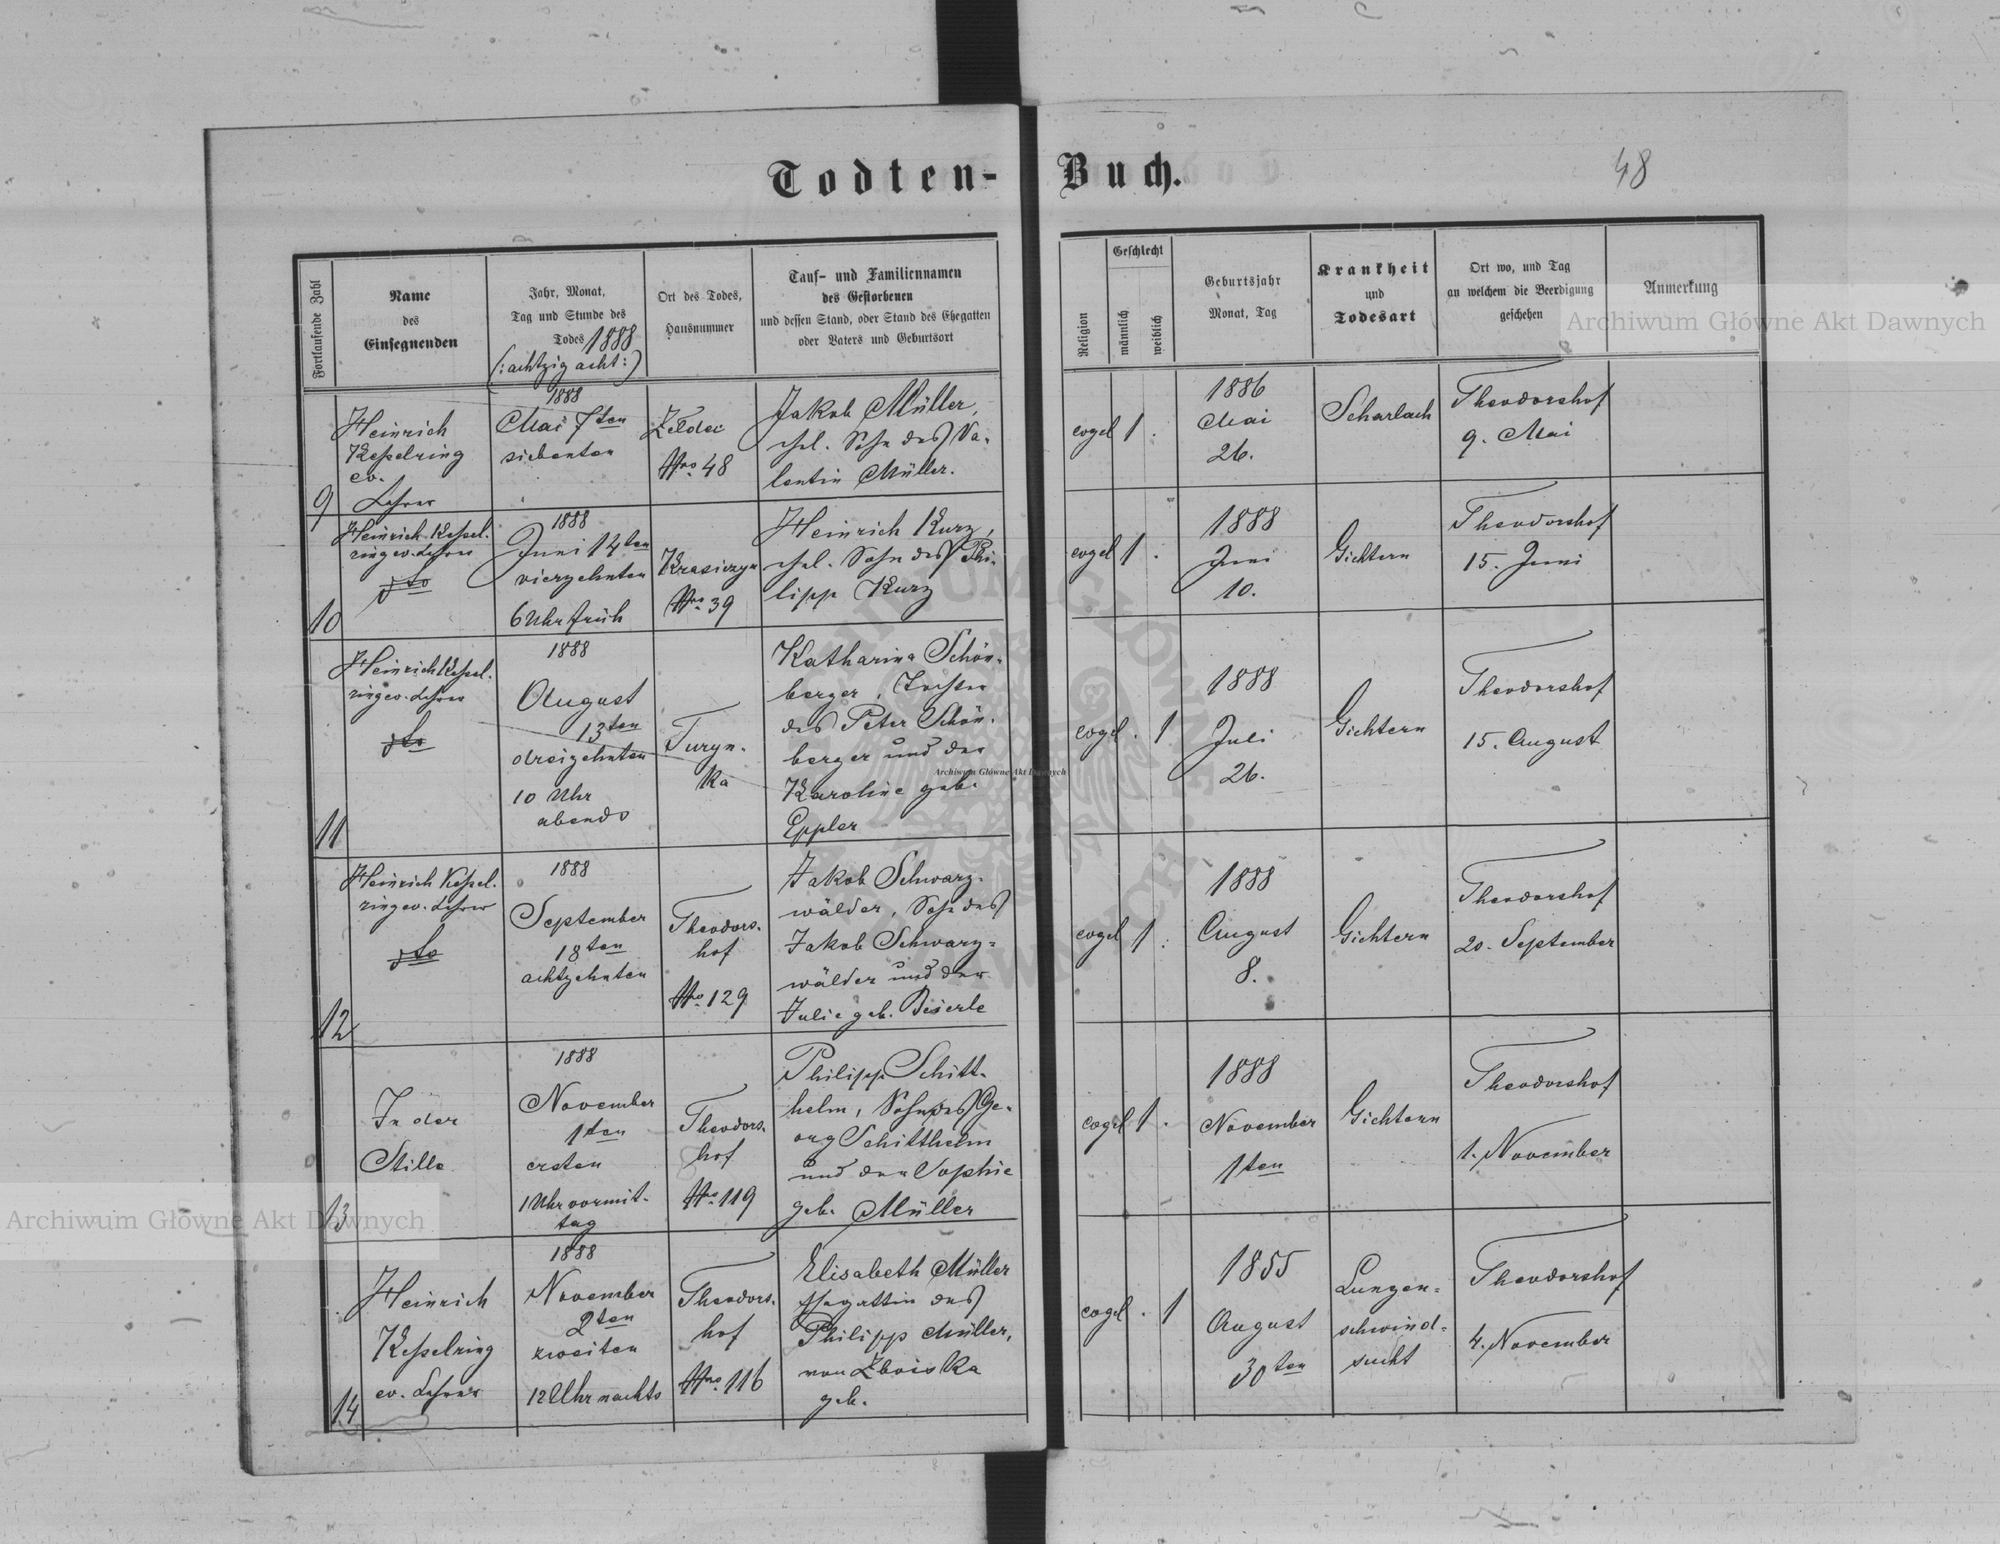 Todten-Buch.
48
Fortlaufende Zahl
Name
des
Einsegnenden
Jahr, Monat,
Tag und Stunde des
Todes 1888
(: achtzig acht :)
Ort des Todes,
Hausnummer
Tauf- und Familiennamen
des Gestorbenen
und dessen Stand, oder Stand des Ehegatten
oder Vaters und Geburtsort
Religion
Geschlecht
männlich
weiblich
Geburtsjahr
Monat, Tag
Krankheit
und
Todesart
Ort wo, und Tag
an welchem die Beerdigung
geschehen
Anmerkung
9
Heinrich
Keßelring
ev.
Lehrer
1888
Mai 7ten
siebenten
Żełdec
Nro. 48
Jakob Müller,
ehel. Sohn des Va-
lentin Müller.
evgel
1
.
1886
Mai
26.
Scharlach
Theodorshof
9. Mai
10
Heinrich Keßel-
ring ev. Lehrer
dto
1888
Juni 14ten
vierzehnten
6 Uhr früh
Krasiczyn
Nro. 39
Heinrich Kurz,
ehel. Sohn des Phi-
lipp Kurz
evgel
1
.
1888
Juni
10.
Gichtern
Theodorshof
15. Juni
11
Heinrich Keßel-
ring ev. Lehrer
dto
1888
August
13ten
dreizehnten
10 Uhr
abends
Turyn-
ka
Katharina Schön-
berger, Tochter
des Peter Schön-
berger und der
Karoline geb.
Eppler
evgel
.
1
1888
Juli
26.
Gichtern
Theodorshof
15. August
12
Heinrich Keßel-
ring ev. Lehrer
dto
1888
September
18ten
achtzehnten
Theodors-
hof
Nro. 129
Jakob Schwarz-
wälder, Sohn des
Jakob Schwarz-
wälder und der
Julie geb. Bisierle
evgel
1
.
1888
August
8.
Gichtern
Theodorshof
20. September
13
In der
Stille
1888
November
1ten
ersten
1 Uhr vormit-
tag
Theodors-
hof
Nro. 119
Philipp Schitt-
helm, Sohn des Ge-
org Schitthelm
und der Sophie
geb. Müller
evgel
1
.
1888
November
1ten
Gichtern
Theodorshof
1. November
14
Heinrich
Keßelring
ev. Lehrer
1888
November
2ten
zweiten
12 Uhr nachts
Theodors-
hof
Nro. 116
Elisabeth Müller
Ehegattin des
Philipp Müller,
von Zboiska
geb.
evgel
.
1
1855
August
30ten
Lungen-
schwind-
sucht
Theodorshof
4. November
Archiwum Główne Akt Dawnych
Archiwum Główne Akt Dawnych
Archiwum Główne Akt Dawnych